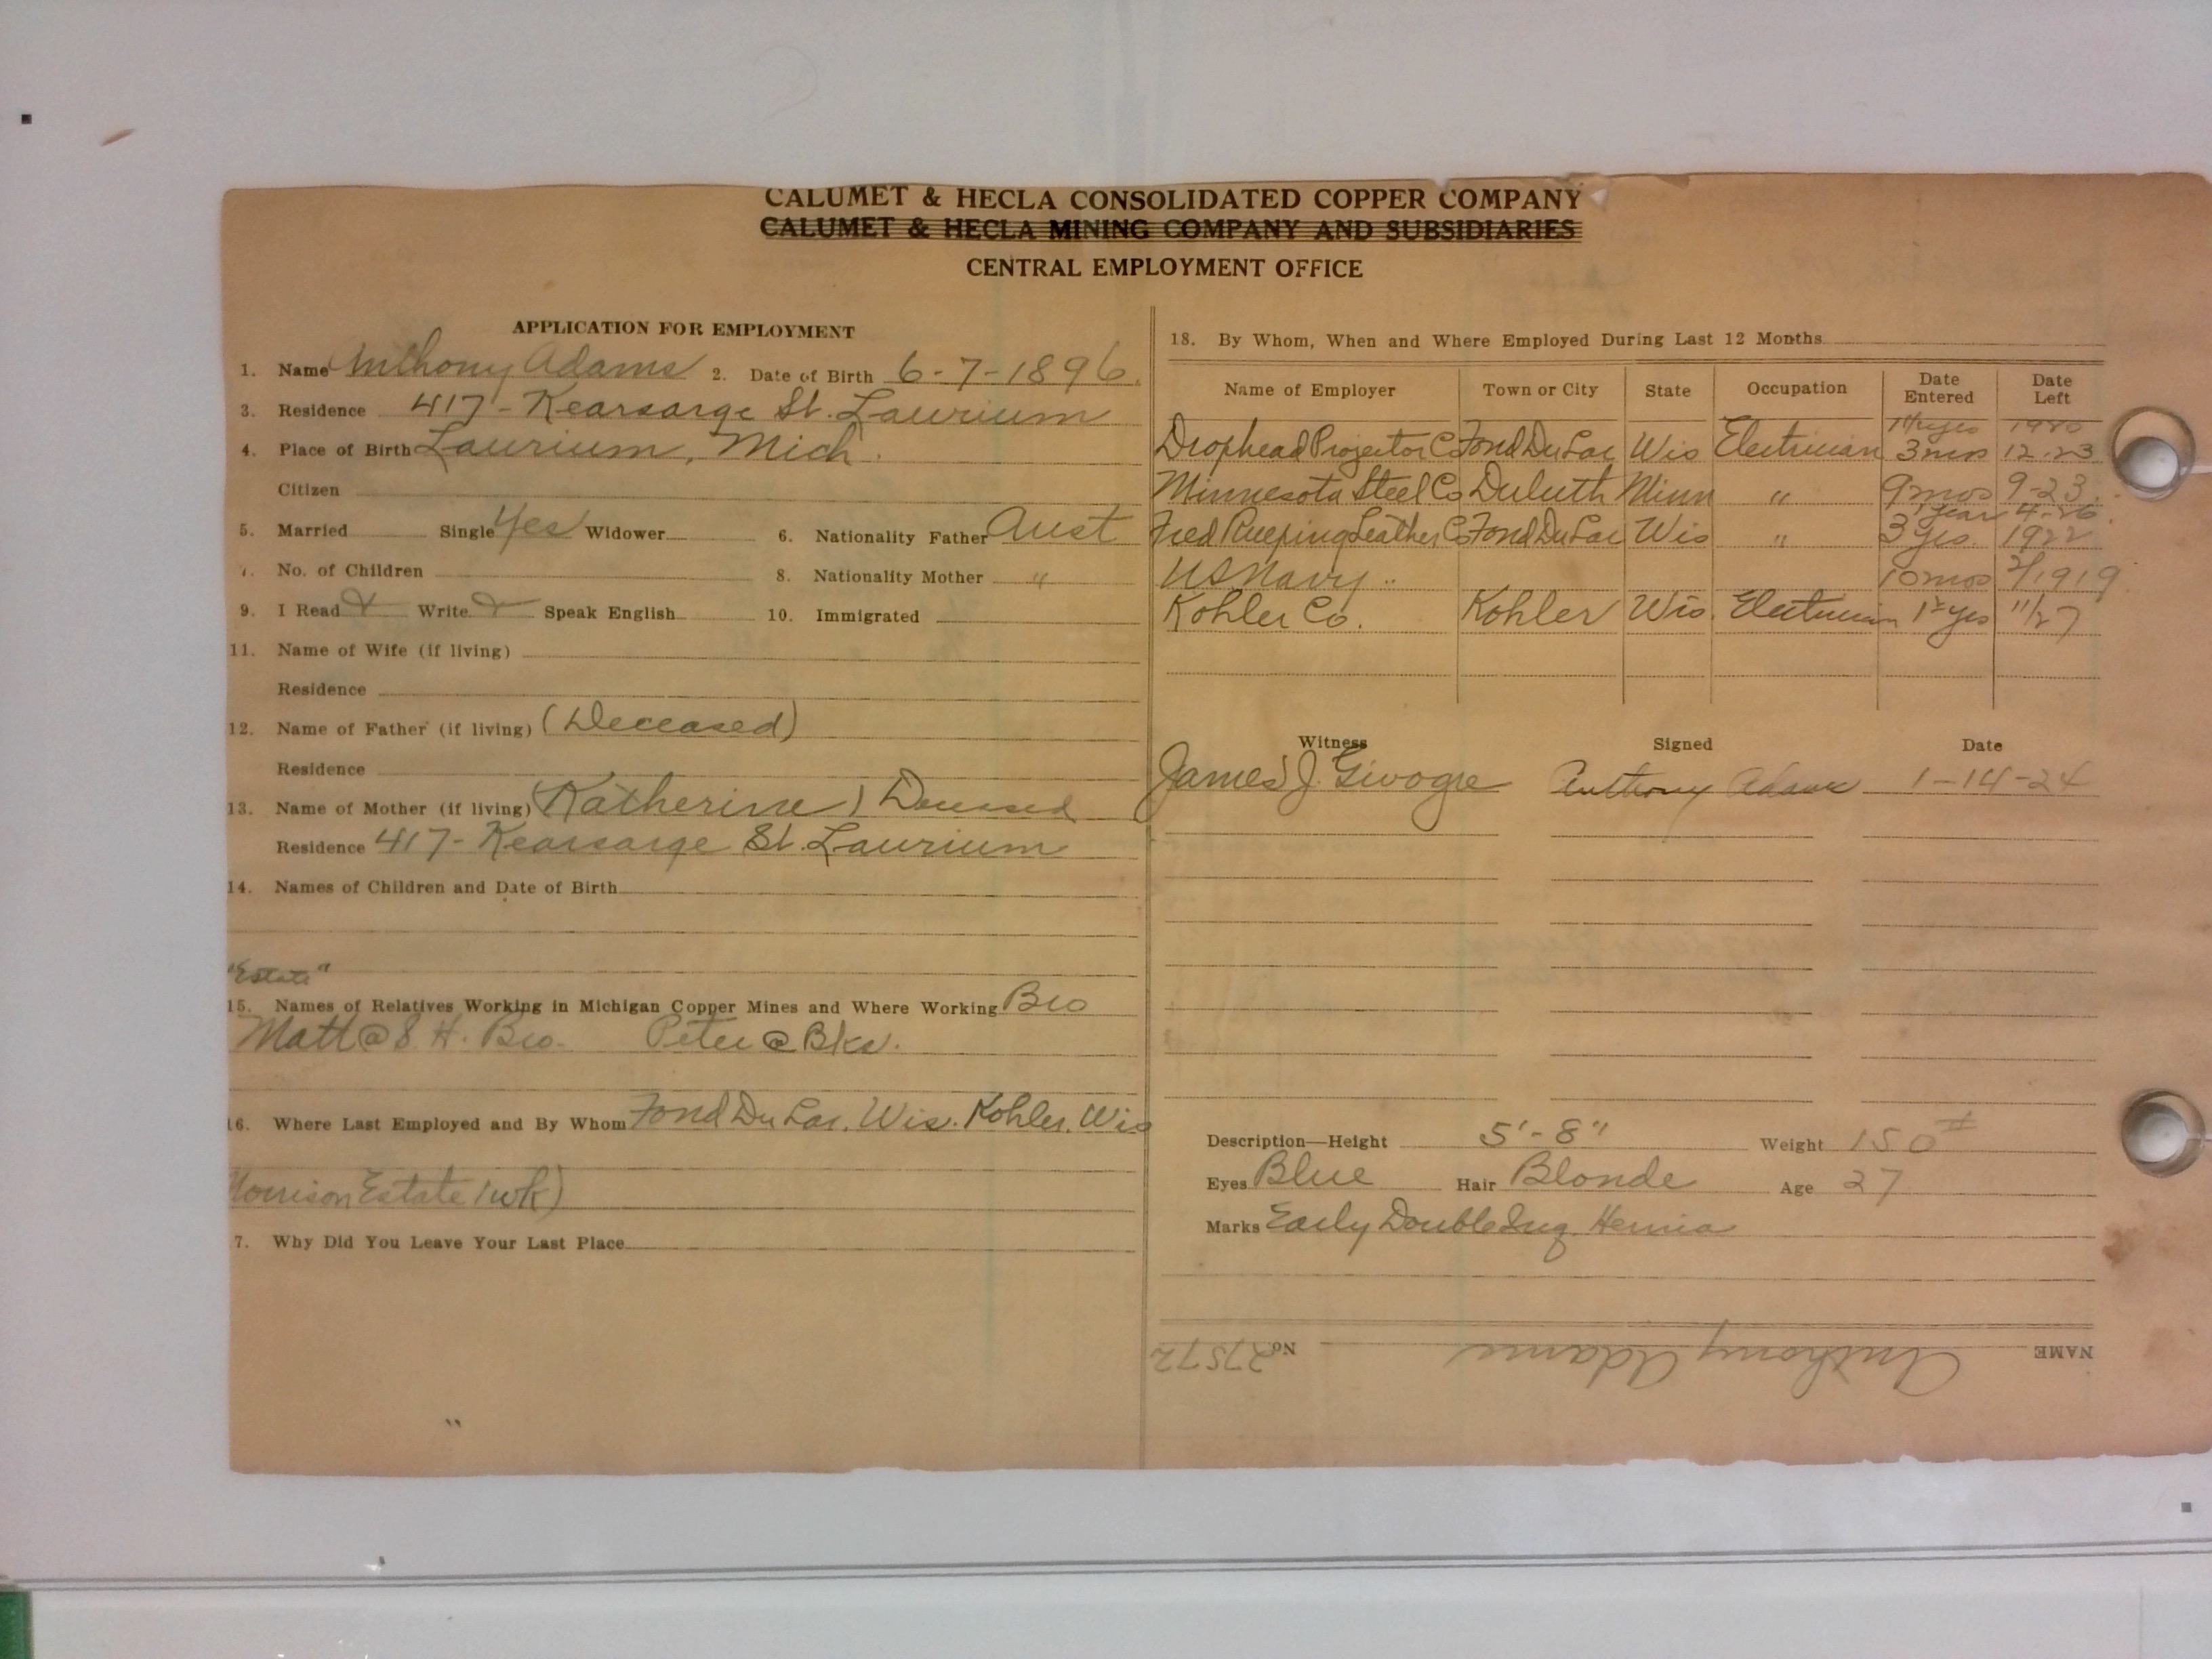 CALUMET & HECLA CONSOLIDATED COPPER COMPANY
CALUMET & HECLA MINING COMPANY AND SUBSIDIARIES
CENTRAL EMPLOYMENT OFFICE
APPLICATION FOR EMPLOYMENT
1. Name Anthony Adams 2. Date of Birth 6-7-1896.
3. Residence 417 - Kearsarge St. Laurium
4. Place of Birth Laurium, Mich.
Citizen
5. Married Single Yes Widower 6. Nationality Father Aust
7. No. of Children 8. Nationality Mother "
9. I Read Write Speak English 10. Immigrated
11. Name of Wife (if living)
Residence
12. Name of Father (if living) (Deceased)
Residence
13. Name of Mother (if living) (Katherine) Deceased
Residence 417 - Kearsarge St. Laurium
14. Names of Children and Date of Birth
"Estate"
15. Names of Relatives Working in Michigan Copper Mines and Where Working Bro
Matt @ S. H. Bro. Peter @ Bks.
16. Where Last Employed and By Whom Fond Du Lac, Wis. Kohler, Wis
Morrison Estate (wk)
7. Why Did You Leave Your Last Place
18. By Whom, When and Where Employed During Last 12 Months
Name of Employer Town or City State Occupation Date Entered Date Left
Drophead Projector Co Fond Du Lac Wis Electrician 3 mos 12-23
Minnesota Steel Co Duluth Minn " 9 mos 9-23.
1 year 4-26.
Fred Rueping Leather Co Fond Du Lac Wis " 3 yrs. 1922
US Navy " 10 mos 2/1919
Kohler Co. Kohler Wis. Electrician 1½ yrs 11/27
Witness Signed Date
James J. Givogre Anthony Adams 1-14-24
Description—Height 5'-8" Weight 150#
Eyes Blue Hair Blonde Age 27
Marks Early Double Ing. Hernia
NAME Anthony Adams No. 27572